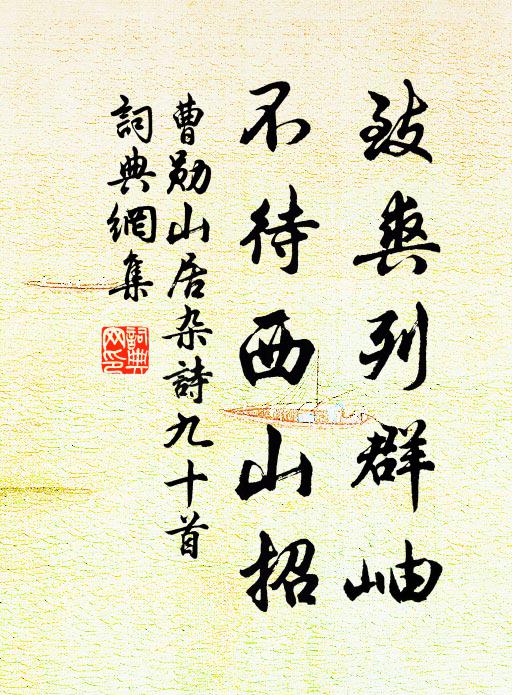 致爽列群岫
不待西山招
曹勋山居杂詩九十首
詞典網集
詞典
网印